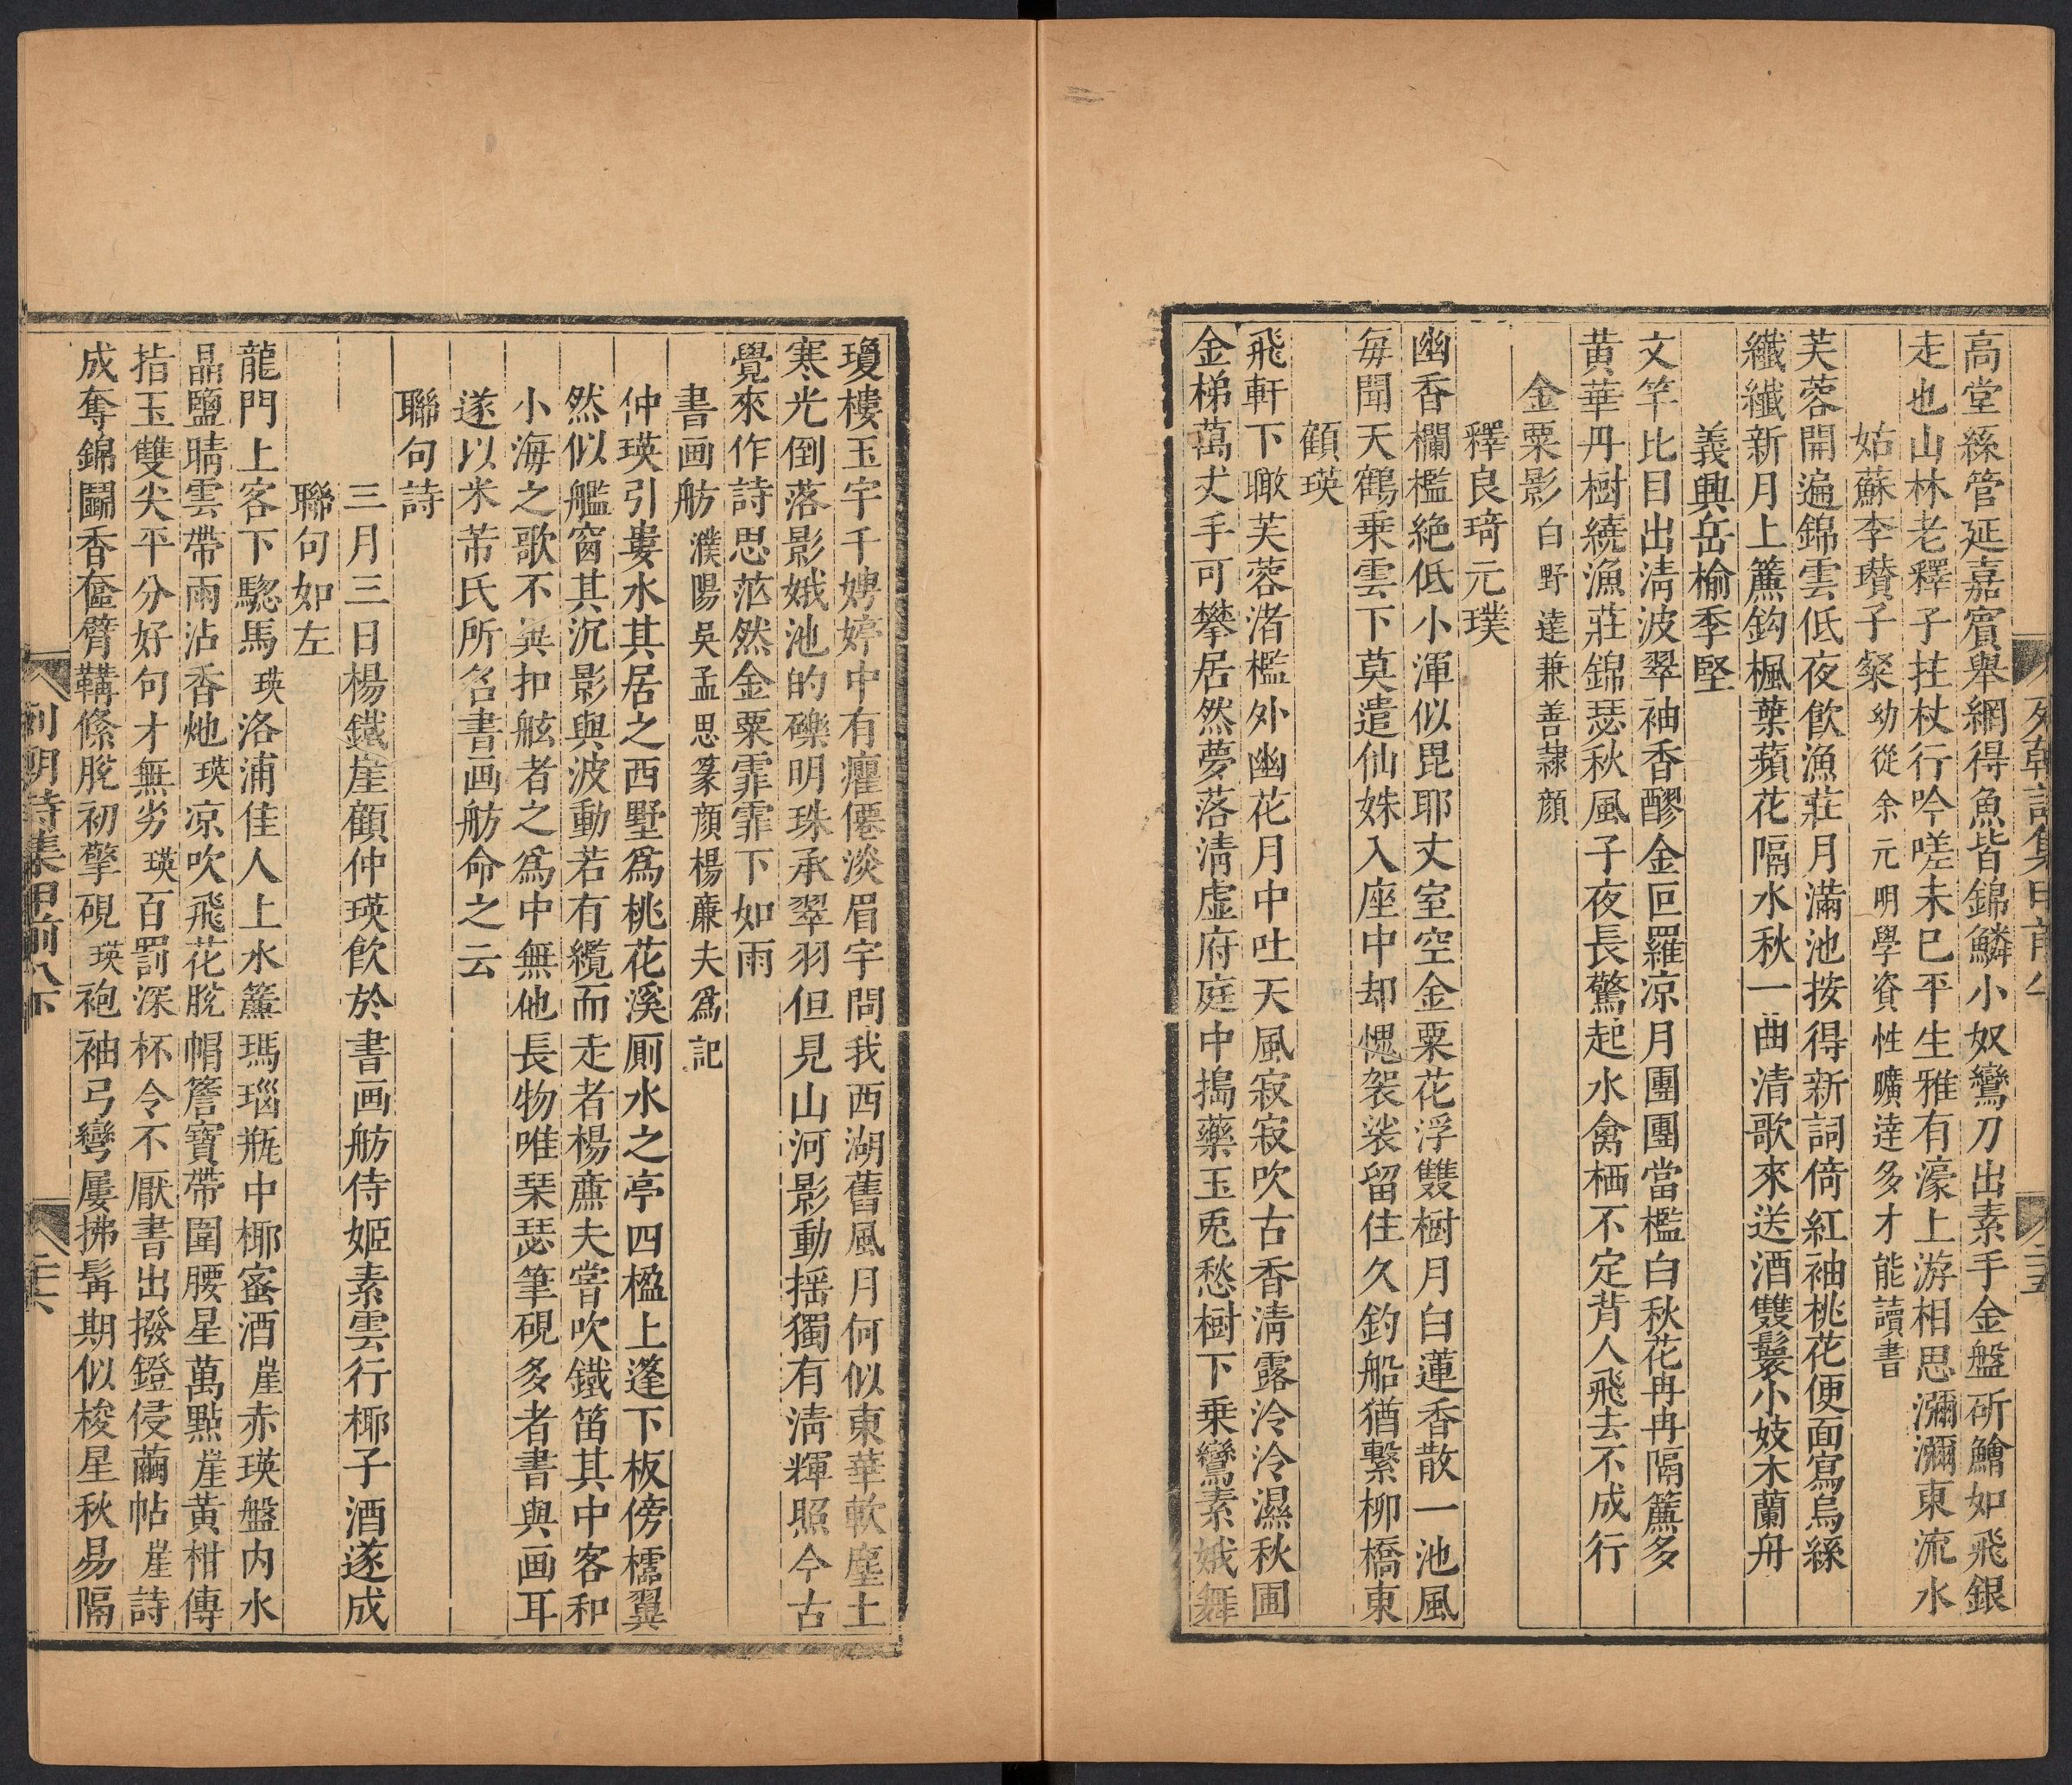 列朝詩集甲前八
二十五
高堂絲管延嘉賓舉網得魚皆錦鱗小奴鸞刀出素手金盤斫鱠如飛銀
走也山林老釋子拄杖行吟嗟未巳平生雅有濠上游相思瀰瀰東流水
姑蘇李瓚子粲幼從余元明學資性曠達多才能讀書
芙蓉開遍錦雲低夜飲漁莊月滿池按得新詞倚紅袖桃花便面寫烏絲
纖纖新月上簾鈎楓葉蘋花隔水秋一曲清歌來送酒雙鬟小妓木蘭舟
義興岳榆季堅
文竿比目出淸波翠袖香醪金叵羅凉月團團當檻白秋花冉冉隔簾多
黄華丹樹繞漁莊錦瑟秋風子夜長驚起水禽栖不定背人飛去不成行
金粟影白野達兼善隷顔
釋良琦元璞
幽香欄檻絶低小渾似毘耶丈室空金粟花浮雙樹月白蓮香散一池風
每聞天鶴乗雲下莫遣仙姝入座中却愧袈裟留住久釣船猶繫柳橋東
顧瑛
飛軒下瞰芙蓉渚檻外幽花月中吐天風寂寂吹古香淸露泠泠濕秋圃
金梯萬丈手可攀居然夢落淸虚府庭中搗藥玉兎愁樹下乗鸞素娥舞
瓊樓玉宇千娉婷中有癯僊淡眉宇問我西湖舊風月何似東華軟塵土
寒光倒落影娥池的礫明珠承翠羽但見山河影動揺獨有淸輝照今古
覺來作詩思茫然金粟霏霏下如雨
書画舫濮陽吳孟思篆顔楊亷夫爲記
仲瑛引婁水其居之西墅爲桃花溪厠水之亭四楹上蓬下板傍櫺翼
然似艦窗其沉影與波動若有纜而走者楊亷夫甞吹鐵笛其中客和
小海之歌不異扣舷者之爲中無他長物唯琹瑟筆硯多者書與画耳
遂以米芾氏所名書画舫命之云
聯句詩
三月三日楊鐵崖顧仲瑛飲於書画舫侍姬素雲行椰子酒遂成
聯句如左
龍門上客下驄馬瑛洛浦佳人上水簾瑪瑙瓶中椰蜜酒崖赤瑛盤内水
晶鹽晴雲帶雨沾香灺瑛凉吹飛花脫帽簷寶帶圍腰星萬點崖黄柑傳
指玉雙尖平分好句才無劣瑛百罰深杯令不厭書出撥鐙侵繭帖崖詩
成奪錦鬭香奩臂韝絛脫初擎硯瑛袍袖弓彎屢拂髯期似梭星秋易隔
列朝詩集甲前八下
二十六